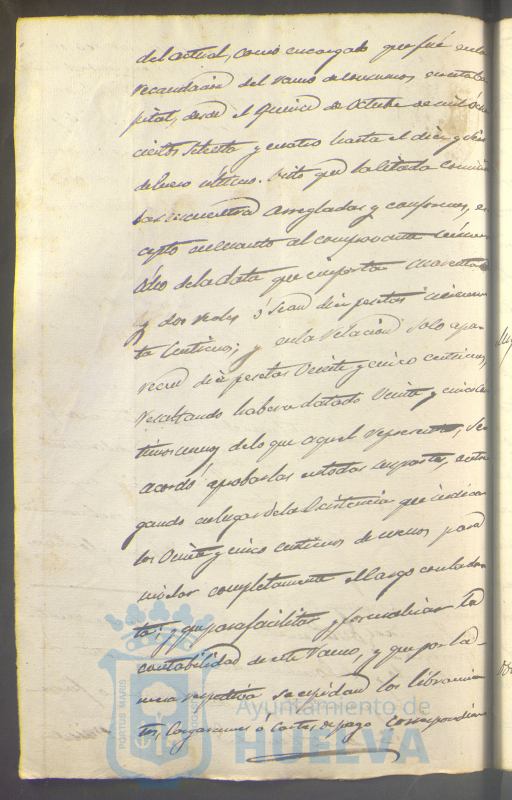 del actual, como encargado que fué en la
recaudación del ramo de consumos en esta ca-
pital, desde el quince de Octubre de mil ocho-
cientos setenta y cuatro hasta el diez y
de Enero último. Visto que la citada
las encuentra arregladas y conformes, es-
cepto en cuanto al comprovante número
ocho de la data que importa cuarenta
y dos reales ó sean diez pesetas cincuen-
ta centimos; y en la relacion solo apa-
recen diez pesetas veinte y cinco centimos,
resultando haberse datado veinte y cinco cen-
timos menos de lo que aquel representa, se
acordó aprobarlas en todas sus partes,
gando en lugar de la Existencia que indican
los veinte y cinco centimos de menos para
nivelar completamente el cargo con la da-
ta; y que para facilitar y formalizar la
contabilidad de este ramo, y que por la
misma se expidan los libramien-
tos, cargaremes ó cartas de pago correspondien-
PORTUS MARIS
Ayuntamiento de
HUELVA